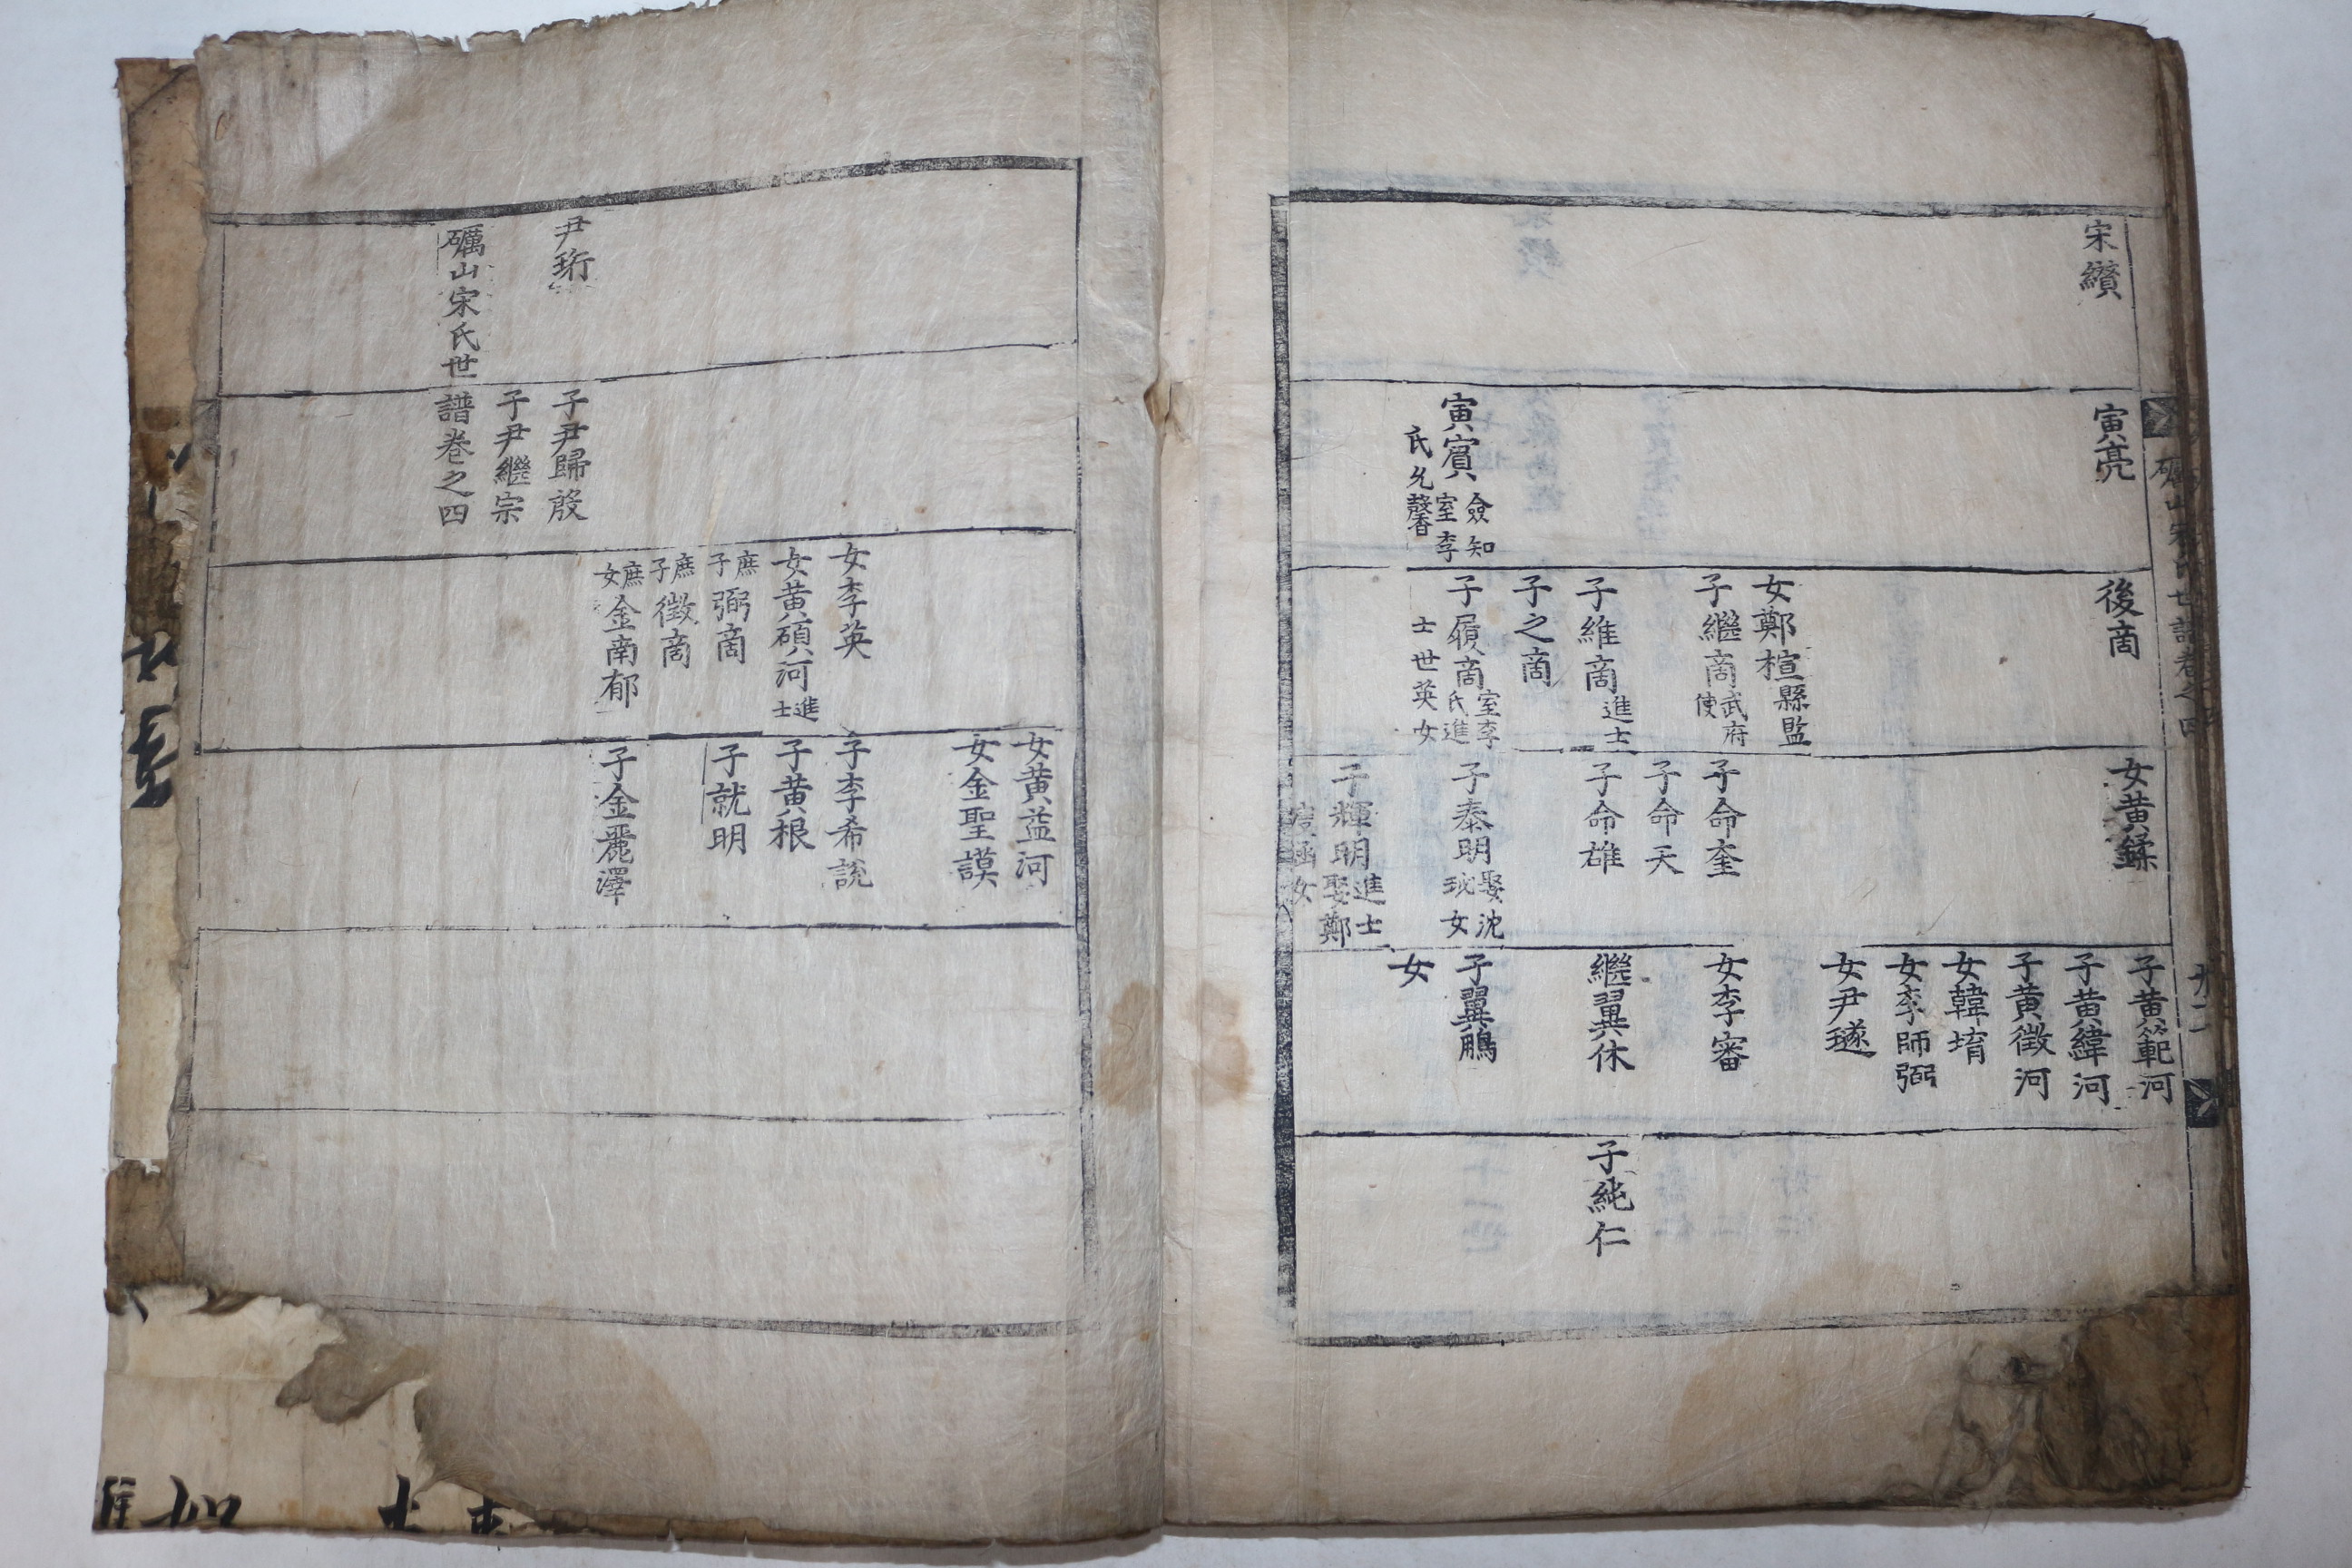 礪山宋氏世譜卷之四
宋纘
寅亮
寅賓 僉知
室李
氏允馨
後啇
女鄭楦縣監
子繼啇 武府
使
子維啇 進士
子之啇
子履啇 室李
氏進
士世英女
女黃鍒
子命奎
子命天
子命雄
子泰明 娶沈
珌女
子輝明 進士
娶鄭
涵女
子黃範河
子黃緯河
子黃徵河
女韓堉
女李師弼
女尹璲
女李審
繼翼休
子翼鵬
女
子純仁
尹珩
礪山宋氏世譜卷之四
子尹歸殷
子尹繼宗
女李英
女黃碩河 進士
庶子弼啇
庶子徵啇
庶女金南郁
女黃益河
女金聖謨
子李希說
子黃根
子就明
子金麗澤